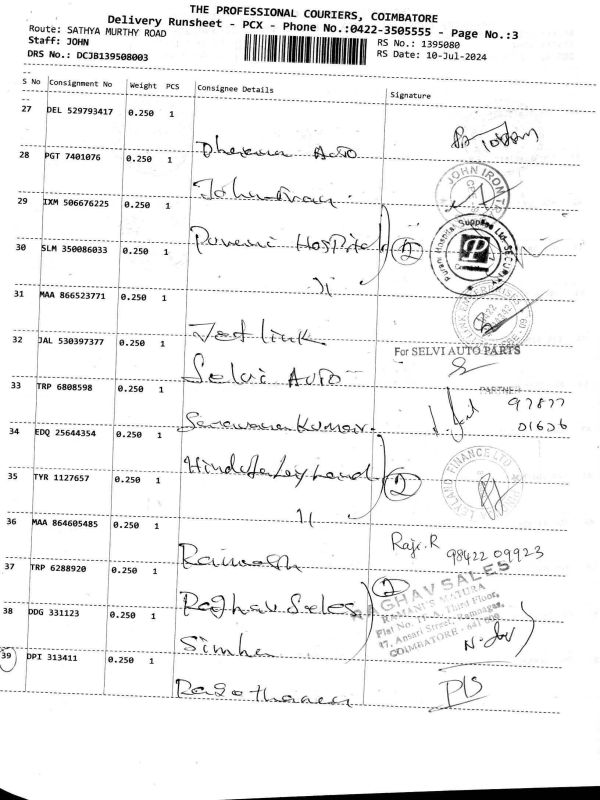 THE PROFESSIONAL COURIERS, COIMBATORE
Delivery Runsheet - PCX - Phone No.:0422-3505555 - Page No.:3
Route: SATHYA MURTHY ROAD
Staff: JOHN
RS No.: 1395080
DRS No.: DCJB139508003
RS Date: 10-Jul-2024
S No Consignment No Weight PCS Consignee Details Signature
27 DEL 529793417 0.250 1
Auto
28 PGT 7401076 0.250 1
JOHN IRON
29 IXM 506676225 0.250 1
Hospital 2
Hospital Supplies Ltd SECURITY
P
30 SLM 350086033 0.250 1
11
31 MAA 866523771 0.250 1
Link
32 JAL 530397377 0.250 1
For SELVI AUTO PARTS
Selvi Auto
PARTNER
33 TRP 6808598 0.250 1
97877
01636
Saravana Kumar
34 EDQ 25644354 0.250 1
Hinduja Leyland 2
LEYLAND FINANCE LTD
35 TYR 1127657 0.250 1
11
36 MAA 864605485 0.250 1
Raji.R
98422 09923
Ramesh
37 TRP 6288920 0.250 1
Raghav Sales 2
RAGHAV SALES
RAMANI'S MAYURA
Flat No. Third Floor,
47, Ansari Street, Ramnagar,
COIMBATORE - 641 009
38 DDG 331123 0.250 1
Simha
39 DPI 313411 0.250 1